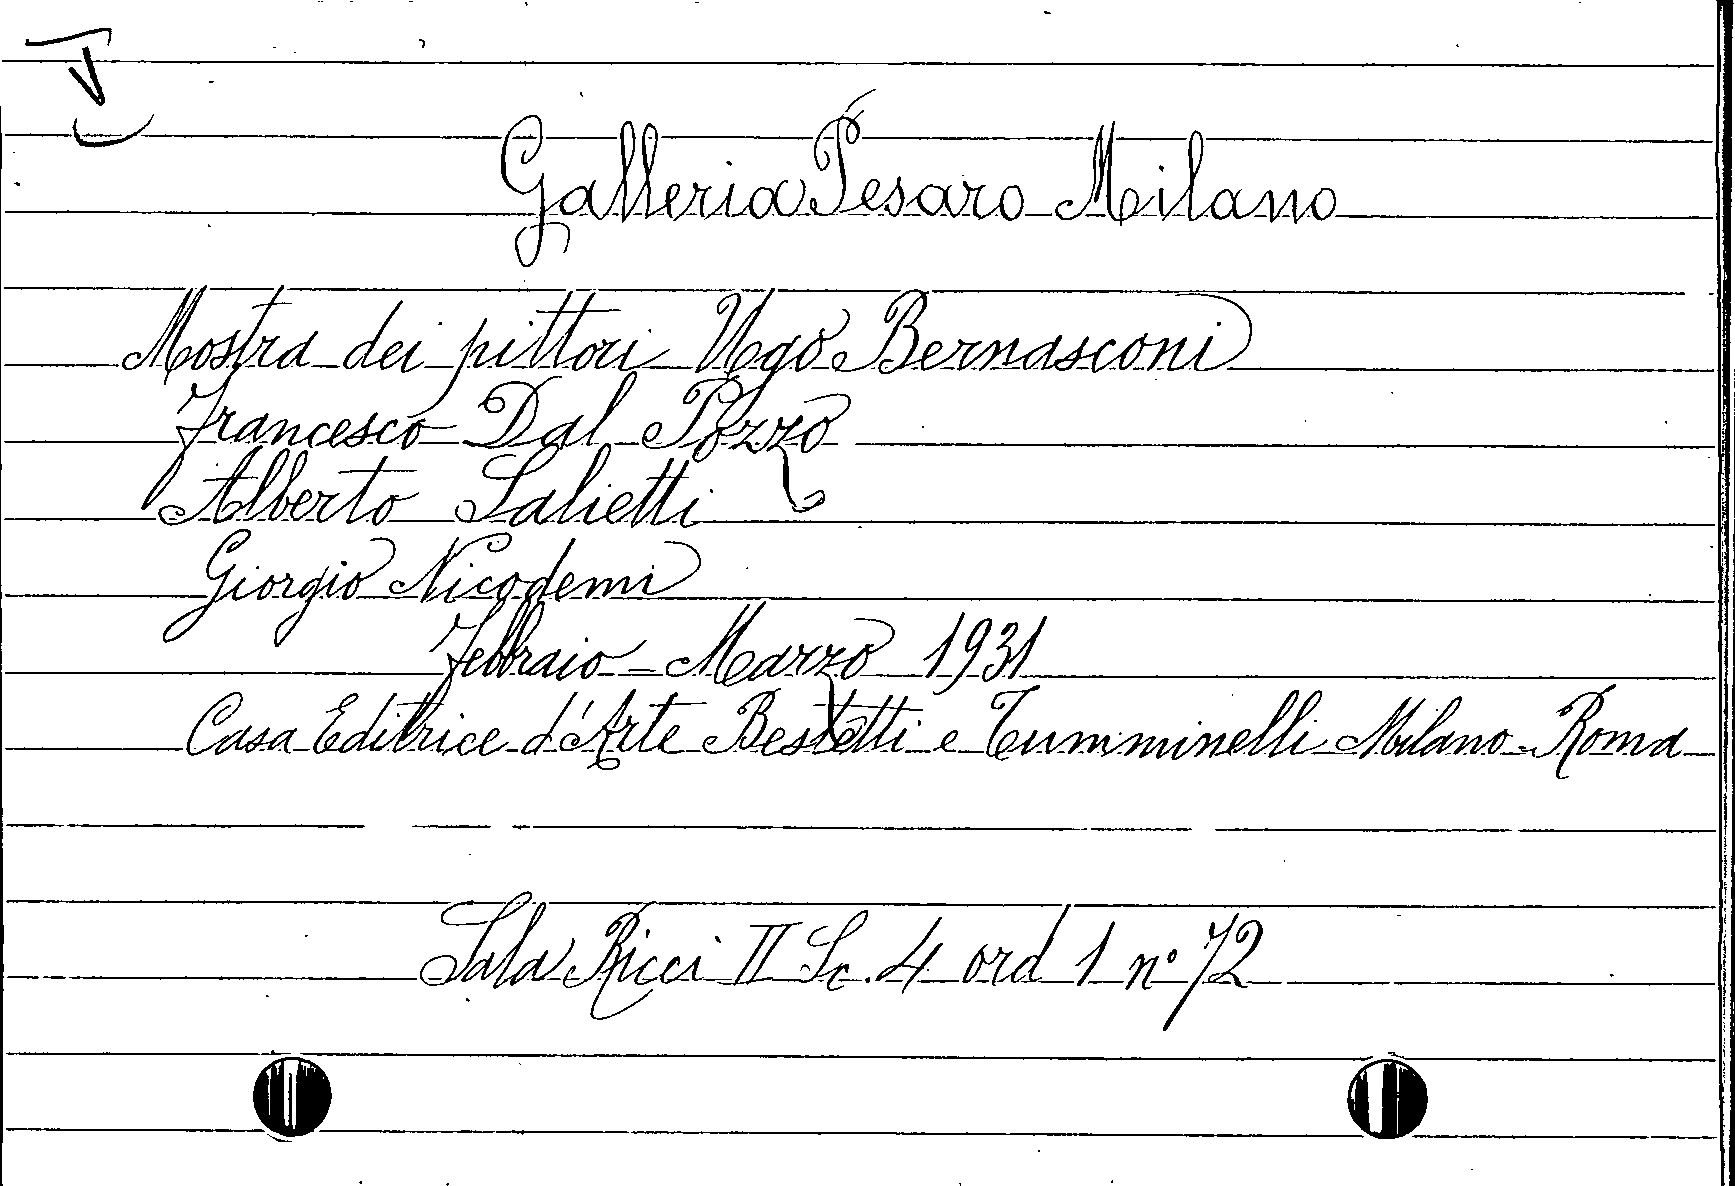 Galleria Pesaro Milano
Mostra dei pittori Ugo Bernasconi
Francesco Dal Pozzo
Alberto Salietti
Giorgio Nicodemi
Febbraio - Marzo 1931
Casa Editrice d'Arte Bestetti e Tumminelli Milano - Roma
Sala Ricci II Sc. 4 ord 1 n° 72